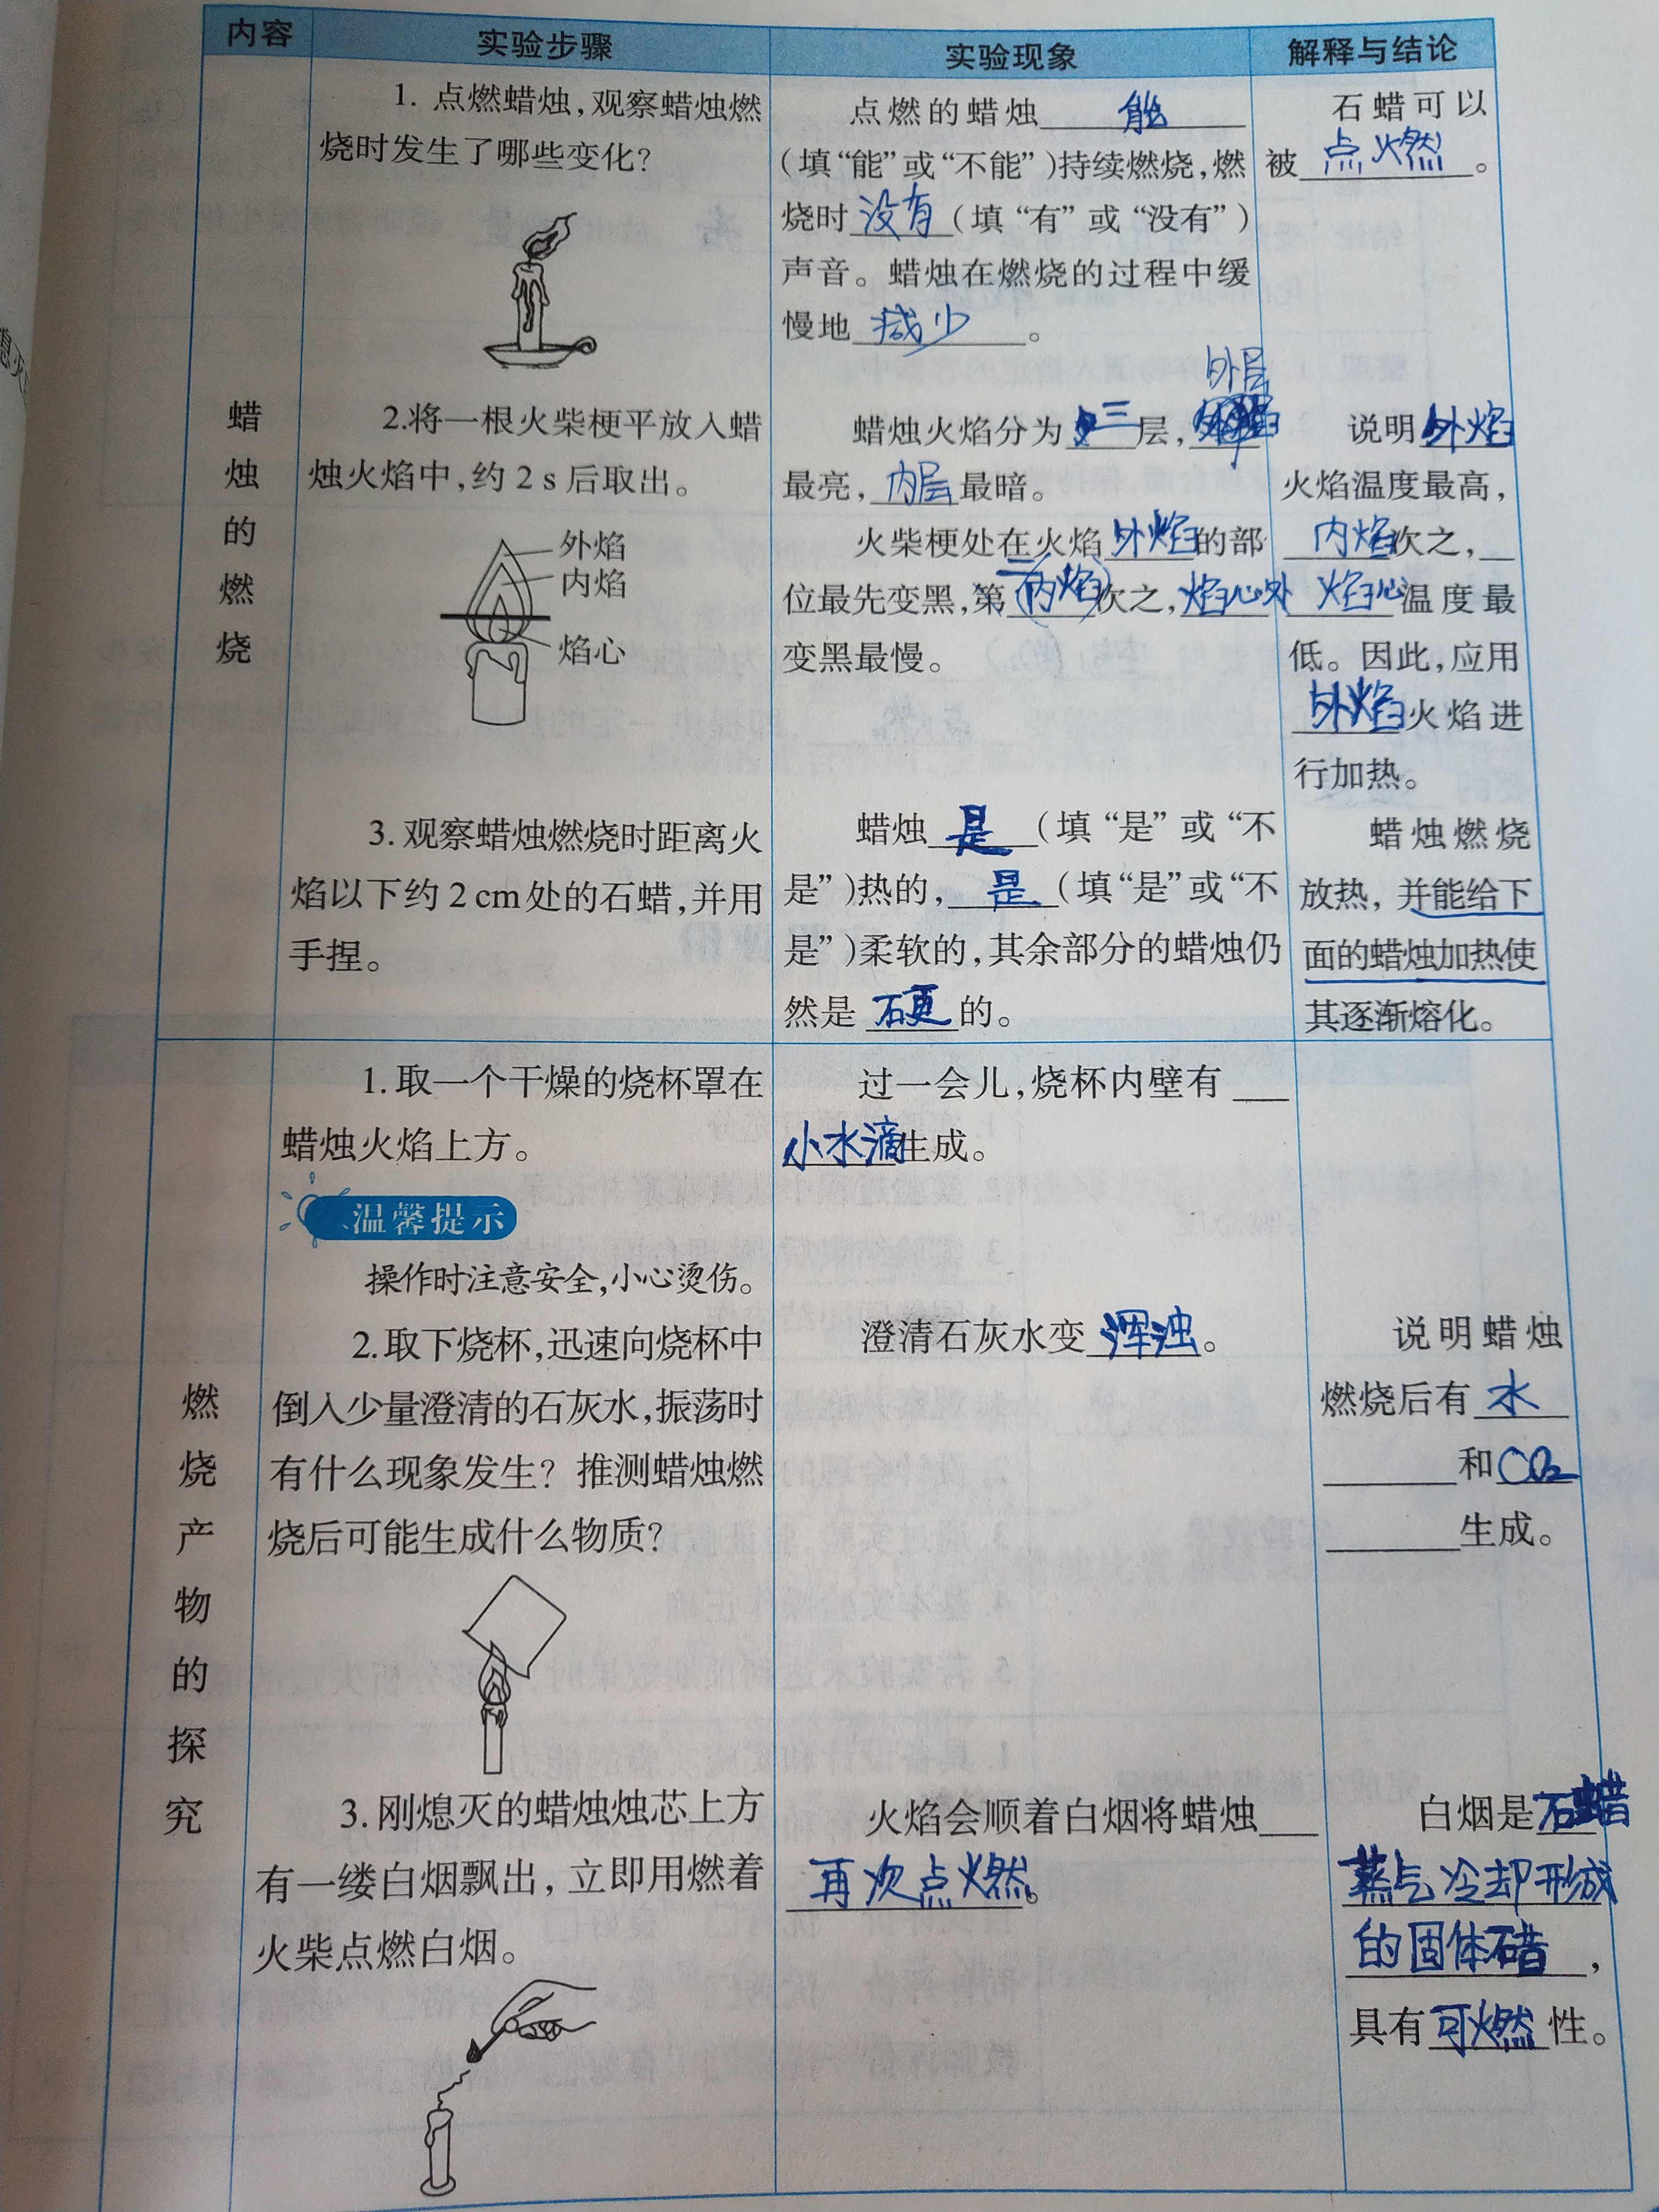 内容 实验步骤 实验现象 解释与结论
蜡烛的燃烧
1. 点燃蜡烛,观察蜡烛燃
烧时发生了哪些变化?
点燃的蜡烛 能
(填“能”或“不能”)持续燃烧,燃
烧时 没有 (填“有”或“没有”)
声音。蜡烛在燃烧的过程中缓
慢地 减少 。
石蜡可以
被 点燃 。
2.将一根火柴梗平放入蜡
烛火焰中,约2 s后取出。
外焰
内焰
焰心
外层
蜡烛火焰分为 三 层,
最亮, 内层 最暗。
火柴梗处在火焰 外焰 的部
位最先变黑,第 二(内焰) 次之, 焰心处
变黑最慢。
说明 外焰
火焰温度最高,
内焰 次之,
焰心 温度最
低。因此,应用
外焰 火焰进
行加热。
3. 观察蜡烛燃烧时距离火
焰以下约2 cm处的石蜡,并用
手捏。
蜡烛 是 (填“是”或“不
是”)热的, 是 (填“是”或“不
是”)柔软的,其余部分的蜡烛仍
然是 硬 的。
蜡烛燃烧
放热,并能给下
面的蜡烛加热使
其逐渐熔化。
燃烧产物的探究
1.取一个干燥的烧杯罩在
蜡烛火焰上方。
温馨提示
操作时注意安全,小心烫伤。
过一会儿,烧杯内壁有
小水滴 生成。
2.取下烧杯,迅速向烧杯中
倒入少量澄清的石灰水,振荡时
有什么现象发生? 推测蜡烛燃
烧后可能生成什么物质?
澄清石灰水变 浑浊 。
说明蜡烛
燃烧后有 水
和 CO₂
生成。
3. 刚熄灭的蜡烛烛芯上方
有一缕白烟飘出,立即用燃着
火柴点燃白烟。
火焰会顺着白烟将蜡烛
再次点燃。
白烟是 石蜡
蒸气冷却形成
的固体 ,
具有 可燃 性。